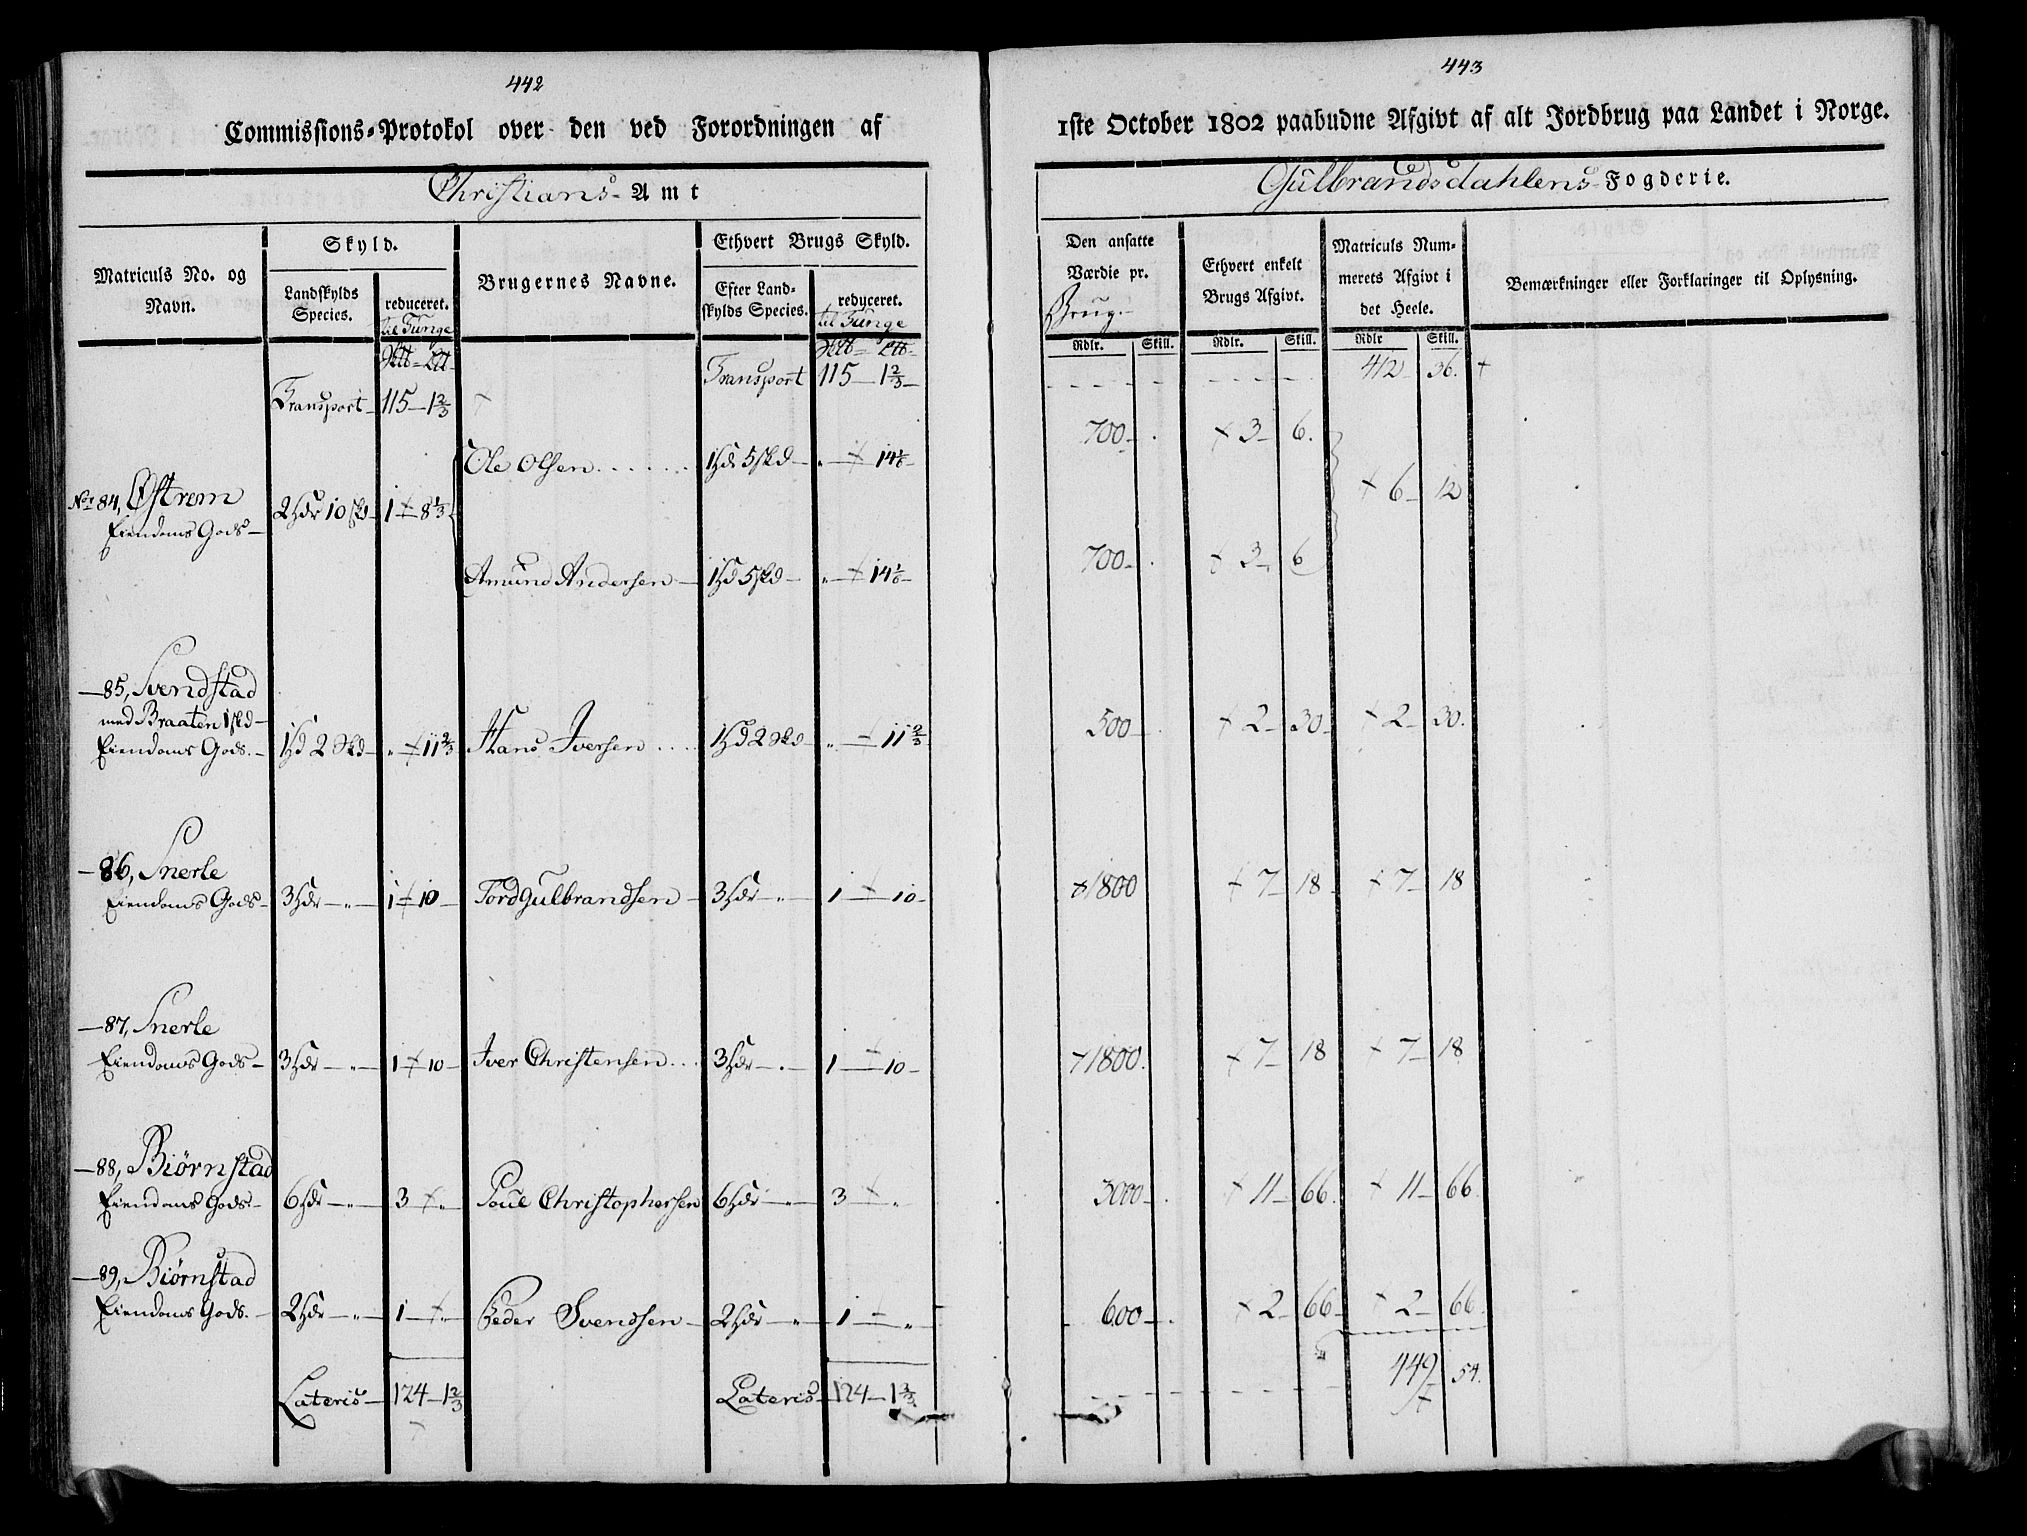 442
Commissions-Protokol over den ved Forordningen af
Christians- Amt
Matriculs No. og Navn.
Skyld.
Landskylds Species.
reduceret. til Tunge
Brugernes Navne.
Ethvert Brugs Skyld.
Efter Landskylds Species.
reduceret. til Tunge
Transport 115-1 2/3-
Transport- 115-1 2/3
Ole Olsen
No 84, Østrem
Eiendoms Gods-
1-8 1/3
Amund Andersen-
-85, Svendstad
med Braaten 1 skd-
Eiendoms Gods.- 11 2/3 Hans Iversen 11 2/3
-86, Snerle
Eiendoms Gods- 3 Hdr-"- 1-10 Tord Gulbrandsen- 3 Hdr-"- 1-10-
-87, Snerle
Eiendoms Gods- 3 Hdr-"- 1-10- Iver Christensen 3 Hdr-"- 1-10-
-88, Biørnstad
Eiendoms Gods- 6 Hdr-"- 3-" Poul Christophersen 6 Hdr-"- 3-"
-89, Biørnstad
Eiendoms Gods.- 2 Hdr-"- 1-" Peder Svendsen- 2 Hdr-"- 1-"
Lateris- 124-1 2/3 Lateris- 124-1 2/3
443
1ste October 1802 paabudne Afgivt af alt Jordbrug paa Landet i Norge.
Gulbrandsdahlens- Fogderie.
Den ansatte Værdie pr. Brug.
Ethvert enkelt Brugs Afgivt.
Matriculs Nummerets Afgivt i det Heele.
Bemærkninger eller Forklaringer til Oplysning.
Rdlr. Skill. Rdlr. Skill. Rdlr Skill.
412 36.
700- 3- 6.
6- 12
700- 3- 6
500- 2- 30- 2- 30.
1800 7- 18- 7- 18
1800. 7- 18 7- 18
3000- 11- 66. 11- 66.
600- 2- 66- 2- 66.
449 54.